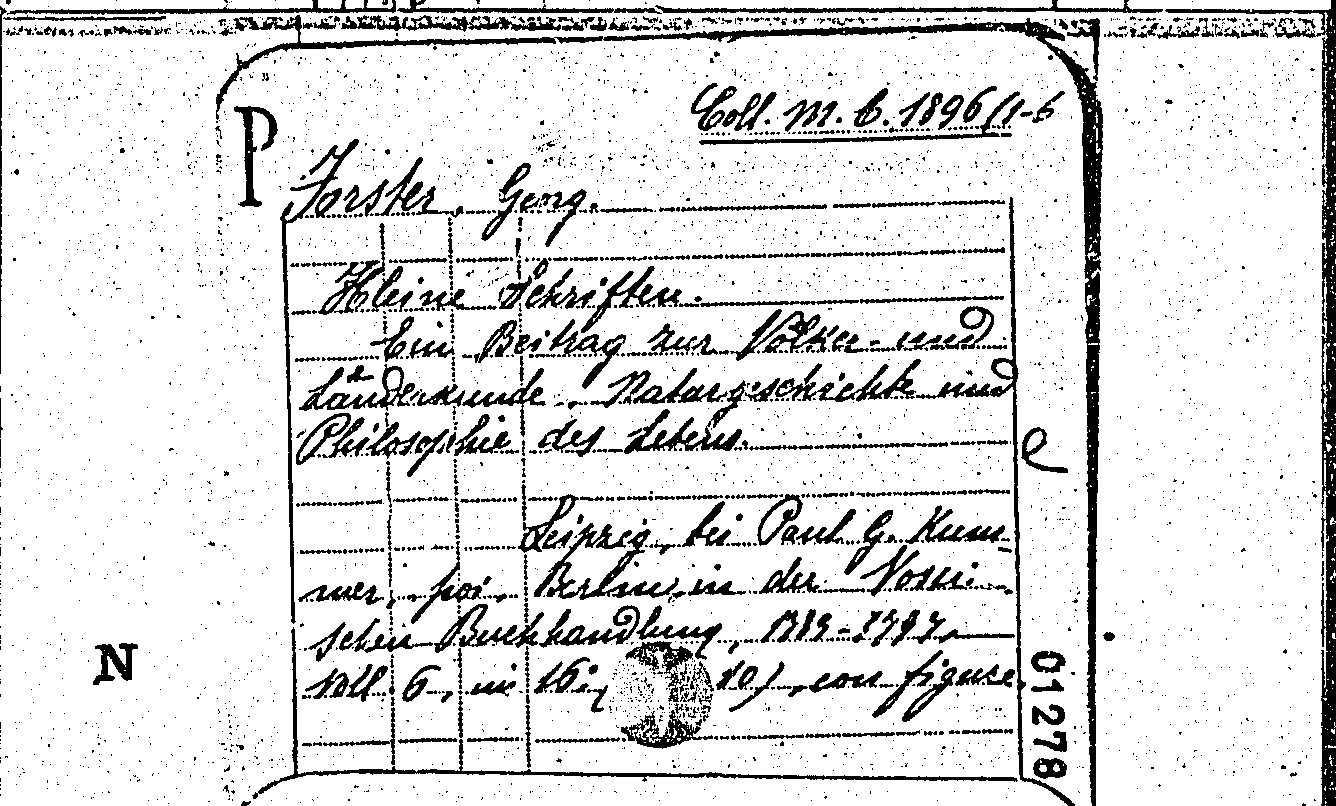 P
Coll. M. C. 1896/1-6
Forster, Georg.
Kleine Schriften.
Ein Beitrag zur Völker- und
Länderkunde, Naturgeschichte und
Philosophie des Lebens.
e
Leipzig, bei Paul G. Kum-
mer, poi, Berlin, in der Vossi-
schen Buchhandlung, 1789-1797.
N
voll. 6, in 16; 10), con figure.
01278